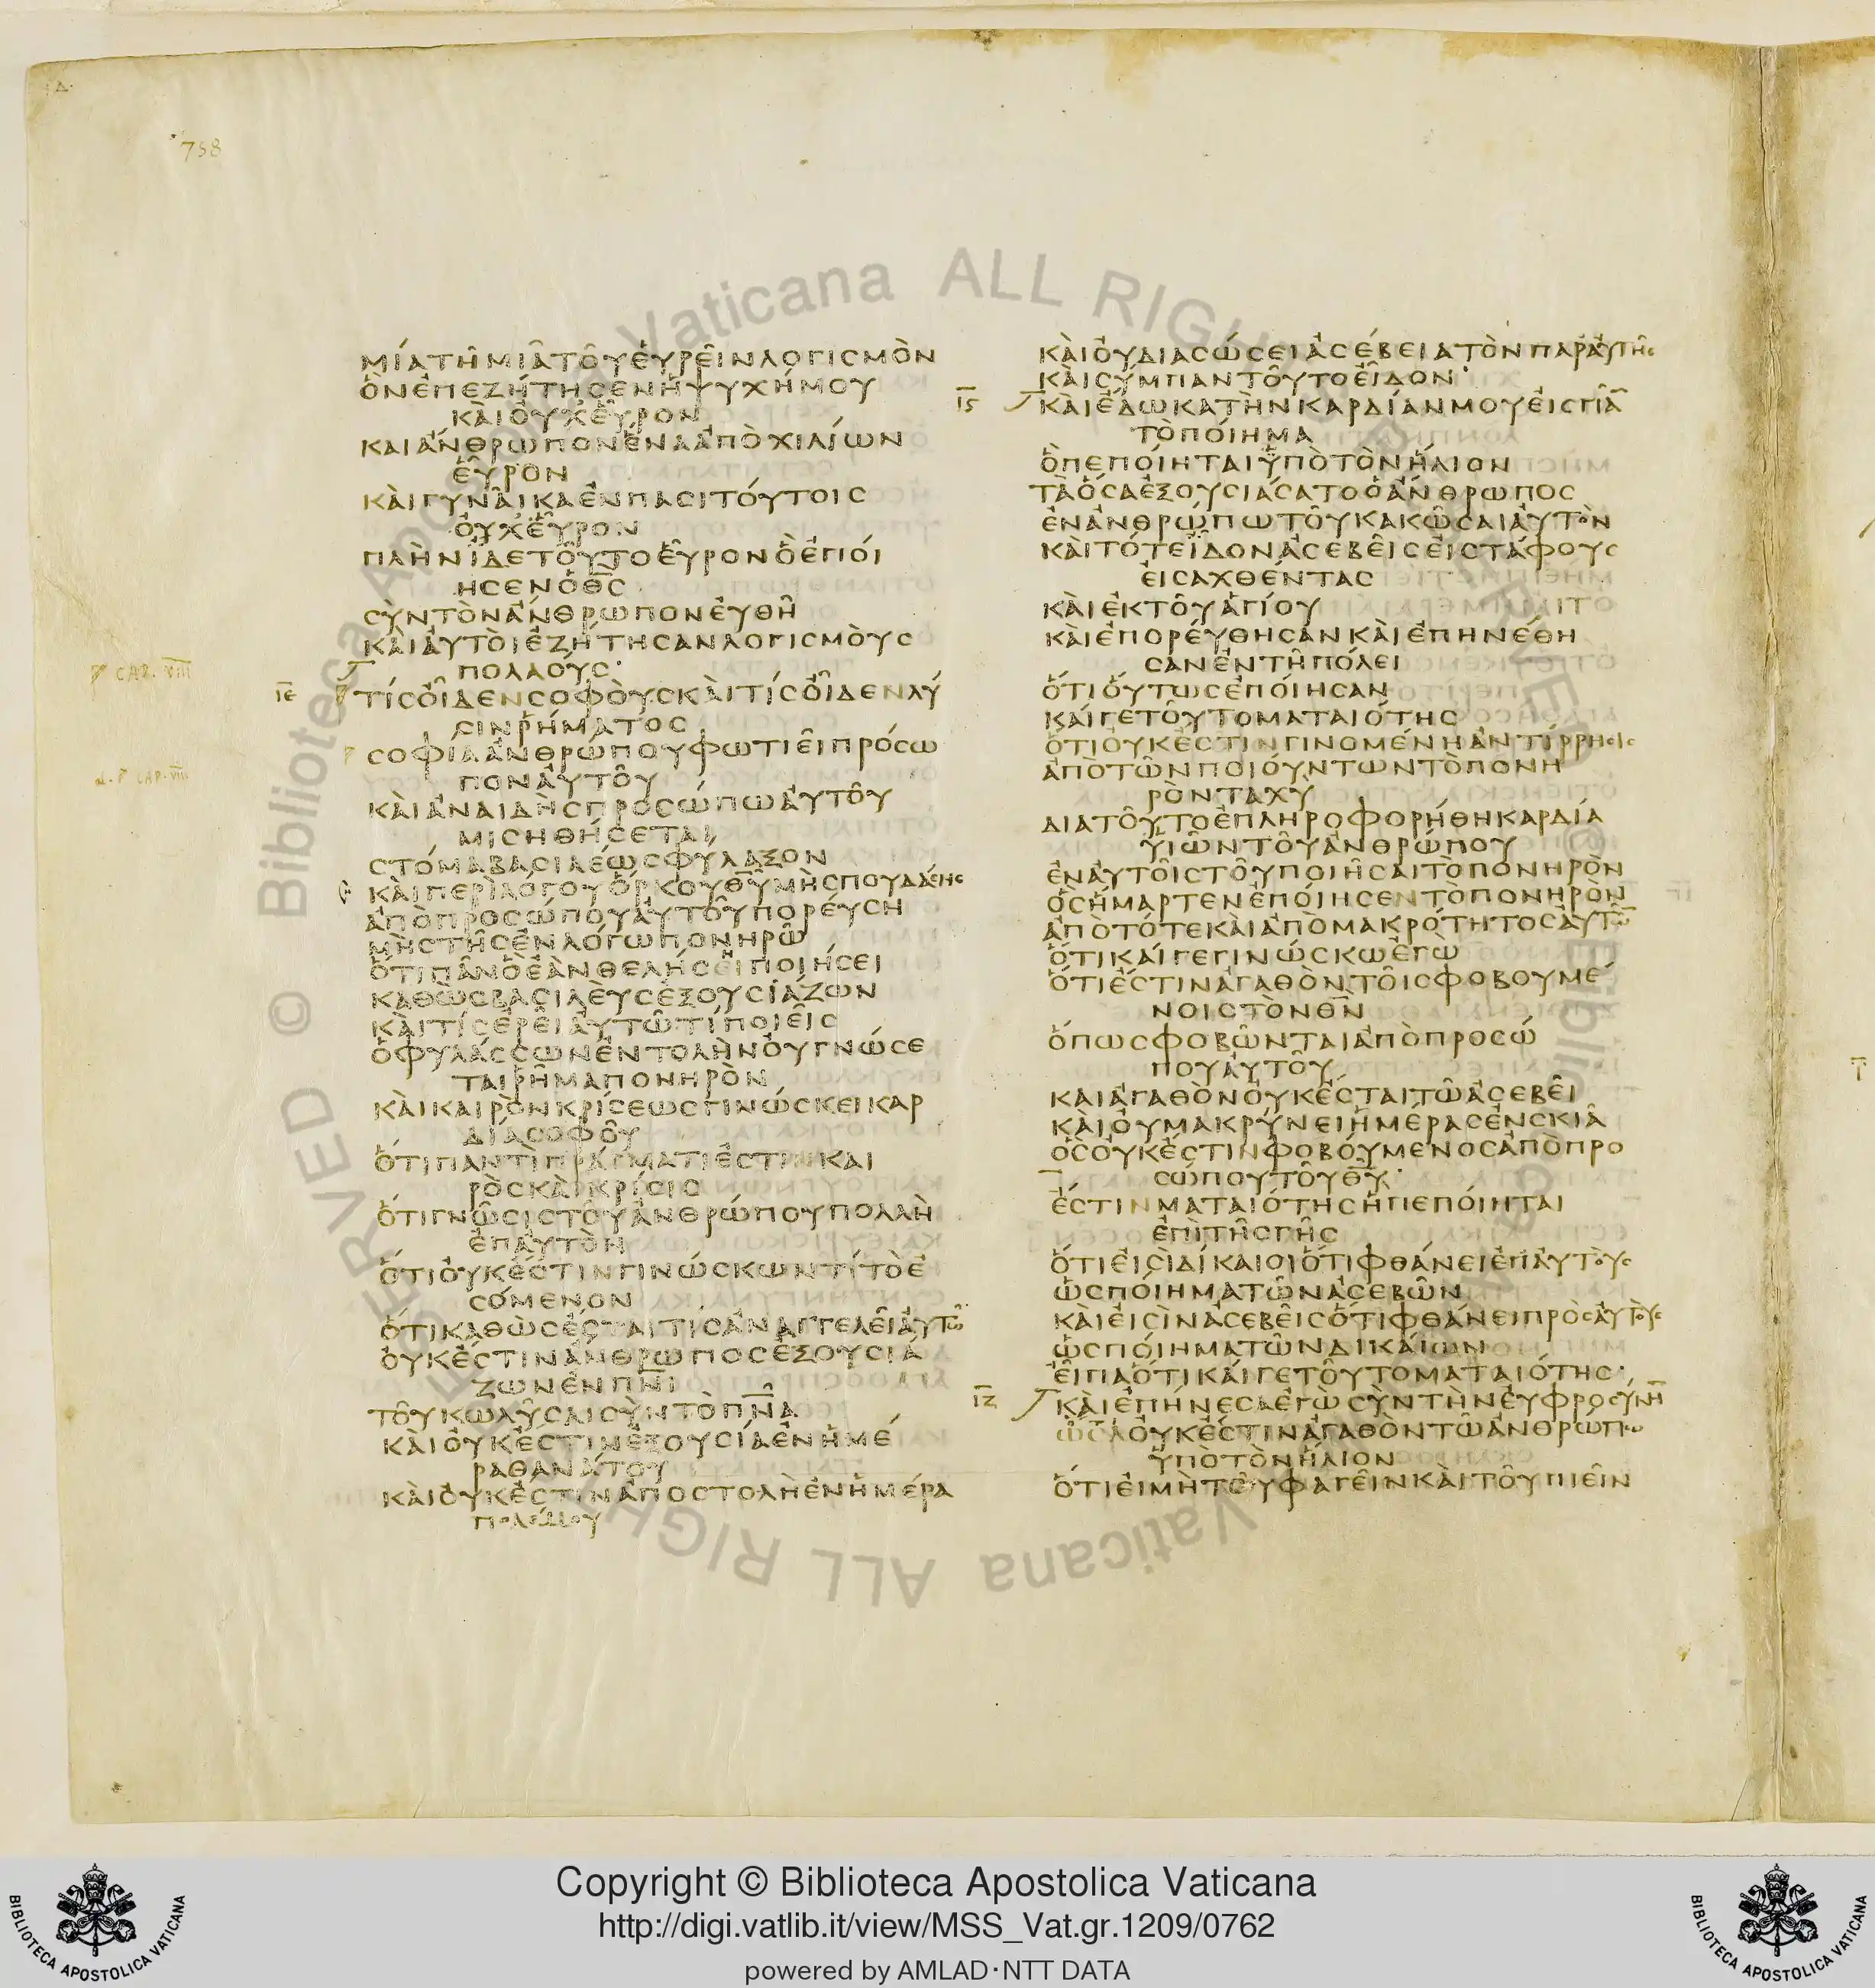 758
ΜΊΑ ΤΗ͂ ΜΙΑ͂ ΤΟΥ͂ ΕὙΡΕΙ͂Ν ΛΟΓΙΣΜῸΝ
ὋΝ ἘΠΕΖΉΤΗΣΕΝ Ἡ ΨΥΧΉ ΜΟΥ
ΚΑῚ ΟΥ̓Χ ΕΥ͂̔ΡΟΝ
ΚΑΙ ἌΝΘΡΩΠΟΝ ἝΝΑ ἈΠῸ ΧΙΛΊΩΝ
ΕΥ͂̔ΡΟΝ
ΚΑῚ ΓΥΝΑΙ͂ΚΑ ἘΝ ΠΑΣΙ ΤΟΎΤΟΙΣ
ΟΥ̓Χ ΕΥ͂̔ΡΟΝ
ΠΛῊΝ ἼΔΕ ΤΟΥ͂ΤΟ ΕΥ͂̔ΡΟΝ Ὃ ἘΠΟΊ
ΗΣΕΝ Ὁ Θ̅Σ̅
ΣῪΝ ΤῸΝ ἌΝΘΡΩΠΟΝ ΕΥ̓ΘΗ͂
ΚΑῚ ΑΥ̓ΤΟῚ ἘΖΉΤΗΣΑΝ ΛΟΓΙΣΜΟῪΣ
ΠΟΛΛΟΎΣ·
P CAP. VIII
ΙΕ ΤΊΣ ΟἾΔΕΝ ΣΟΦΟῪΣ ΚΑῚ ΤΊΣ ΟἾΔΕΝ ΛΎ
ΣΙΝ ῬΉΜΑΤΟΣ
ΣΟΦΊΑ ἈΝΘΡΏΠΟΥ ΦΩΤΙΕΙ͂ ΠΡΌΣΩ
ΠΟΝ ΑΥ̓ΤΟΥ͂
ΚΑῚ ἈΝΑΙΔῊΣ ΠΡΟΣΏΠΩ ΑΥ̓ΤΟΥ͂
ΜΙΣΗΘΉΣΕΤΑΙ
ΣΤΌΜΑ ΒΑΣΙΛΈΩΣ ΦΎΛΑΞΟΝ
ΚΑῚ ΠΕΡῚ ΛΌΓΟΥ ὍΡΚΟΥ Θ̅Υ̅ ΜῊ ΣΠΟΥΔΆΣΗΣ
ἈΠῸ ΠΡΟΣΏΠΟΥ ΑΥ̓ΤΟΥ͂ ΠΟΡΕΎΣΗ
ΜῊ ΣΤΗ͂Σ ἘΝ ΛΌΓΩ ΠΟΝΗΡΩ͂
ὍΤΙ ΠΑ͂Ν Ὃ ἘᾺΝ ΘΕΛΉΣΕΙ ΠΟΙΉΣΕΙ
ΚΑΘῺΣ ΒΑΣΙΛΕῪΣ ἘΞΟΥΣΙΆΖΩΝ
ΚΑῚ ΤΊΣ ἘΡΕΙ͂ ΑΥ̓ΤΩ͂ ΤΊ ΠΟΙΕΙ͂Σ
Ὁ ΦΥΛΆΣΣΩΝ ἘΝΤΟΛῊΝ ΟΥ̓ ΓΝΏΣΕ
ΤΑΙ ῬΗ͂ΜΑ ΠΟΝΗΡῸΝ
ΚΑῚ ΚΑΙΡῸΝ ΚΡΊΣΕΩΣ ΓΙΝΏΣΚΕΙ ΚΑΡ
ΔΊΑ ΣΟΦΟΥ͂
ὍΤΙ ΠΑΝΤῚ ΠΡΆΓΜΑΤΙ ἘΣΤΙΝ ΚΑΙ
ΡῸΣ ΚΑῚ ΚΡΊΣΙΣ
ὍΤΙ ΓΝΩ͂ΣΙΣ ΤΟΥ͂ ἈΝΘΡΏΠΟΥ ΠΟΛΛῊ
ἘΠ ΑΥ̓ΤῸΝ
ὍΤΙ ΟΥ̓Κ ἜΣΤΙΝ ΓΙΝΏΣΚΩΝ ΤΊ ΤῸ Ἐ
ΣΌΜΕΝΟΝ
ὍΤΙ ΚΑΘῺΣ ἜΣΤΑΙ ΤΙΣ ἈΝΑΓΓΕΛΕΙ͂ ΑΥ̓ΤΩ͂
ΟΥ̓Κ ἜΣΤΙΝ ἌΝΘΡΩΠΟΣ ἘΞΟΥΣΙΆ
ΖΩΝ ἘΝ Π̅Ν̅Ι̅
ΤΟΥ͂ ΚΩΛΥ͂ΣΑΙ ΣῪΝ ΤῸ Π̅Ν̅Α̅
ΚΑῚ ΟΥ̓Κ ἜΣΤΙΝ ἘΞΟΥΣΊΑ ἘΝ ἩΜΈ
ΡΑ ΘΑΝΆΤΟΥ
ΚΑῚ ΟΥ̓Κ ἜΣΤΙΝ ἈΠΟΣΤΟΛῊ ἘΝ ἩΜΈΡΑ
ΠΟΛΈΜΟΥ
ΚΑῚ ΟΥ̓ ΔΙΑΣΏΣΕΙ ἈΣΈΒΕΙΑ ΤῸΝ ΠΑΡ ΑΥ̓ΤΗ͂Σ
ΚΑῚ ΣΎΜΠΑΝ ΤΟΥ͂ΤΟ ΕἾΔΟΝ·
ΙϚ ΚΑῚ ἜΔΩΚΑ ΤῊΝ ΚΑΡΔΊΑΝ ΜΟΥ ΕἸΣ ΠΑ͂
ΤῸ ΠΟΊΗΜΑ
Ὃ ΠΕΠΟΊΗΤΑΙ ὙΠῸ ΤῸΝ ἭΛΙΟΝ
ΤᾺ ὍΣΑ ἘΞΟΥΣΙΆΣΑΤΟ Ὁ ἌΝΘΡΩΠΟΣ
ἘΝ ἈΝΘΡΏΠΩ ΤΟΥ͂ ΚΑΚΩ͂ΣΑΙ ΑΥ̓ΤῸΝ
ΚΑῚ ΤΌΤΕ ΕἾΔΟΝ ἈΣΕΒΕΙ͂Σ ΕἸΣ ΤΆΦΟΥΣ
ΕἸΣΑΧΘΈΝΤΑΣ
ΚΑῚ ἘΚ ΤΟΥ͂ ἉΓΊΟΥ
ΚΑῚ ἘΠΟΡΕΎΘΗΣΑΝ ΚΑῚ ἘΠΗΝΈΘΗ
ΣΑΝ ἘΝ ΤΗ͂ ΠΌΛΕΙ
ὍΤΙ ΟὝΤΩΣ ἘΠΟΊΗΣΑΝ
ΚΑΊ ΓΕ ΤΟΥ͂ΤΟ ΜΑΤΑΙΌΤΗΣ
ὍΤΙ ΟΥ̓Κ ἜΣΤΙΝ ΓΙΝΟΜΈΝΗ ἈΝΤΊΡΡΗΣΙΣ
ἈΠῸ ΤΩ͂Ν ΠΟΙΟΎΝΤΩΝ ΤῸ ΠΟΝΗ
ΡῸΝ ΤΑΧῪ
ΔΙΑ ΤΟΥ͂ΤΟ ἘΠΛΗΡΟΦΟΡΉΘΗ ΚΑΡΔΊΑ
ΥἹΩ͂Ν ΤΟΥ͂ ἈΝΘΡΏΠΟΥ
ἘΝ ΑΥ̓ΤΟΙ͂Σ ΤΟΥ͂ ΠΟΙΗ͂ΣΑΙ ΤῸ ΠΟΝΗΡῸΝ
ὋΣ ἭΜΑΡΤΕΝ ἘΠΟΊΗΣΕΝ ΤῸ ΠΟΝΗΡῸΝ
ἈΠῸ ΤΌΤΕ ΚΑῚ ἈΠῸ ΜΑΚΡΌΤΗΤΟΣ ΑΥ̓ΤΩ͂
ὍΤΙ ΚΑΊ ΓΕ ΓΙΝΏΣΚΩ ἘΓΩ
ὍΤΙ ἘΣΤΙΝ ἈΓΑΘῸΝ ΤΟΙ͂Σ ΦΟΒΟΥΜΈ
ΝΟΙΣ ΤῸΝ Θ̅Ν̅
ὍΠΩΣ ΦΟΒΩ͂ΝΤΑΙ ἈΠῸ ΠΡΟΣΏ
ΠΟΥ ΑΥ̓ΤΟΥ͂
ΚΑΙ ἈΓΑΘῸΝ ΟΥ̓Κ ἜΣΤΑΙ ΤΩ͂ ἈΣΕΒΕΙ͂
ΚΑῚ ΟΥ̓ ΜΑΚΡΥΝΕΙ͂ ἩΜΈΡΑΣ ἘΝ ΣΚΙΑ͂
ὋΣ ΟΥ̓Κ ἜΣΤΙΝ ΦΟΒΟΎΜΕΝΟΣ ἈΠῸ ΠΡΟ
ΣΏΠΟΥ ΤΟΥ͂ Θ̅Υ̅·
ἜΣΤΙΝ ΜΑΤΑΙΌΤΗΣ Ἣ ΠΕΠΟΊΗΤΑΙ
ἘΠῚ ΤΗ͂Σ ΓΗ͂Σ
ὍΤΙ ΕἸΣῚ ΔΊΚΑΙΟΙ ὍΤΙ ΦΘΆΝΕΙ ἘΠ ΑΥ̓ΤΟῪΣ
ὩΣ ΠΟΊΗΜΑ ΤΩ͂Ν ἈΣΕΒΩ͂Ν
ΚΑῚ ΕἸΣῚΝ ἈΣΕΒΕΙ͂Σ ὍΤΙ ΦΘΆΝΕΙ ΠΡῸΣ ΑΥ̓ΤΟῪΣ
ὩΣ ΠΟΊΗΜΑ ΤΩ͂Ν ΔΙΚΑΊΩΝ
ΕἾΠΑ ὍΤΙ ΚΑΊ ΓΕ ΤΟΥ͂ΤΟ ΜΑΤΑΙΌΤΗΣ·
ΙΖ ΚΑῚ ἘΠΉΝΕΣΑ ἘΓῺ ΣῪΝ ΤῊΝ ΕΥ̓ΦΡΟΣΎΝΗ̅
ΟΥ̓Κ ἜΣΤΙΝ ἈΓΑΘῸΝ ΤΩ͂ ἈΝΘΡΏΠΩ
ὙΠῸ ΤῸΝ ἭΛΙΟΝ
ὍΤΙ ΕἸ ΜῊ ΤΟΥ͂ ΦΑΓΕΙ͂Ν ΚΑῚ ΤΟΥ͂ ΠΙΕΙ͂Ν
Copyright © Biblioteca Apostolica Vaticana
http://digi.vatlib.it/view/MSS_Vat.gr.1209/0762
powered by AMLAD·NTT DATA
BIBLIOTECA APOSTOLICA VATICANA
BIBLIOTECA APOSTOLICA VATICANA